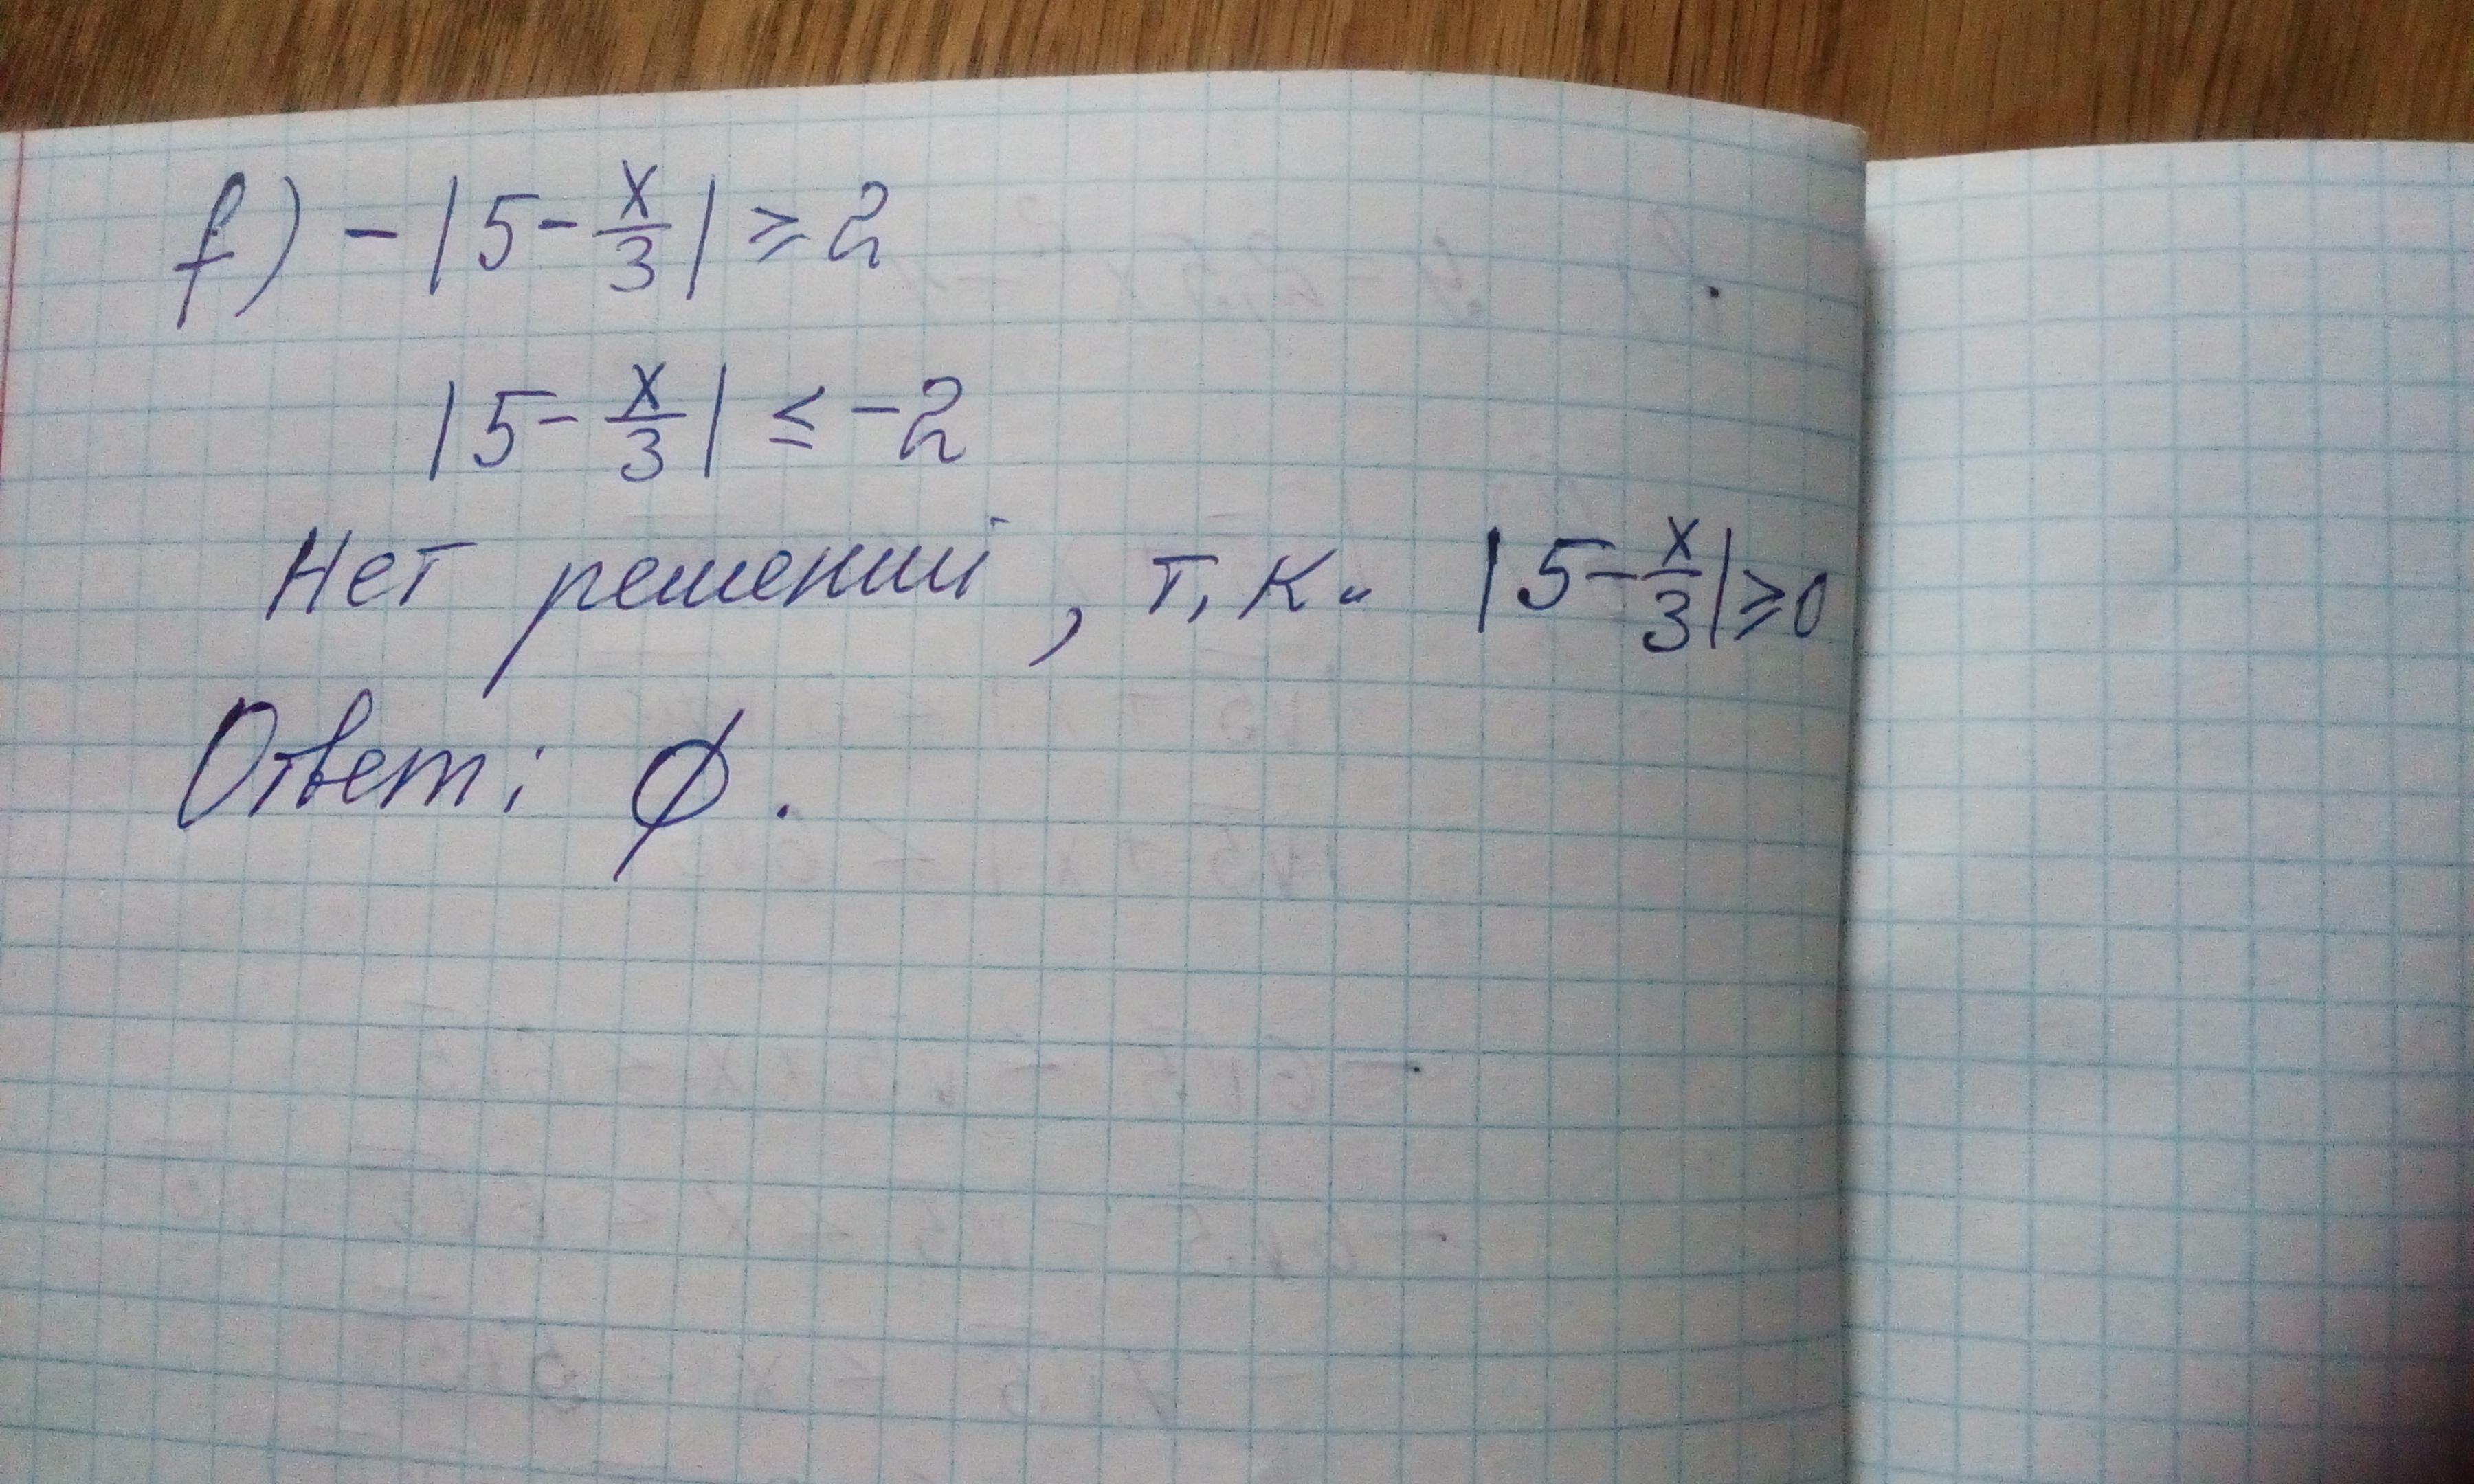 f) -|5-x/3| ≥ 2
|5-x/3| ≤ -2
Нет решений, т.к. |5-x/3| ≥ 0
Ответ: ∅.